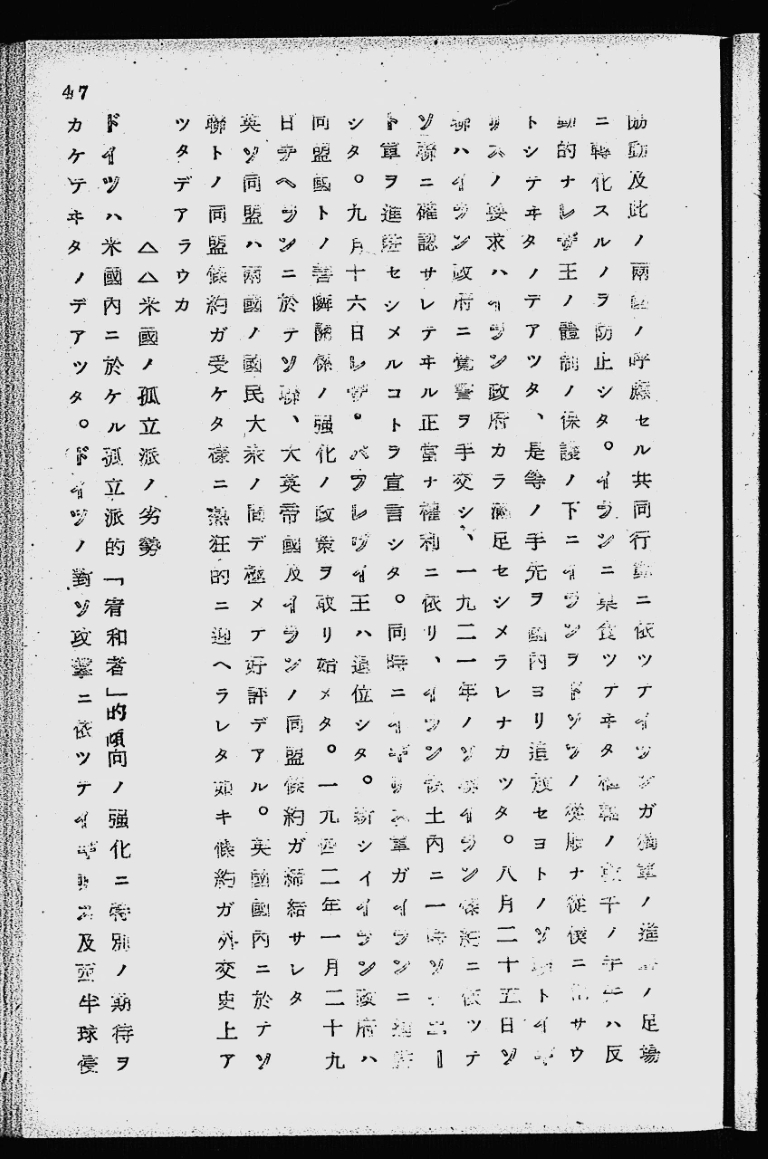 47
協動及此ノ兩國ノ呼應セル共同行動ニ依ツテイランガ獨軍ノ進ノ足場
ニ轉化スルノヲ防止シタ。イランニ巣食ツテヰタ樞軸ノノ手ハ反
動的ナレザ王ノ體制ノ保護ノ下ニイランヲドイツノ從順ナ從僕ニ化サウ
トシテヰタノデアツタ、是等ノ手先ヲ國内ヨリ追放セヨトノソ聯トイギ
リスノ要求ハイラン政府カラ滿足セシメラレナカツタ。八月二十五日ソ
聯ハイラン政府ニ覺書ヲ手交シ、一九二一年ノソ聯イラン條約ニ依ツテ
ソ聯ニ確認サレテヰル正當ナ權利ニ依リ、イラン領土内ニ一時ソヴエー
ト軍ヲ進駐セシメルコトヲ宣言シタ。同時ニイギリス軍ガイランニ進駐
シタ。九月十六日レザ。パフレヴイ王ハ退位シタ。新シイイラン政府ハ
同盟國トノ善隣關係ノ强化ノ政策ヲ取リ始メタ。一九四二年一月二十九
日テヘランニ於テソ聯、大英帝國及イランノ同盟條約ガ締結サレタ
英ソ同盟ハ兩國ノ國民大衆ノ間デ極メテ好評デアル。英國國内ニ於テソ
聯トノ同盟條約ガ受ケタ樣ニ熱狂的ニ迎ヘラレタ如キ條約ガ外交史上ア
ツタデアラウカ
△△米國ノ孤立派ノ劣勢
ドイツハ米國内ニ於ケル孤立派的「宥和者」的傾向ノ强化ニ特別ノ期待ヲ
カケテヰタノデアツタ。ドイツノ對ソ攻擊ニ依ツテイギリス及西半球侵